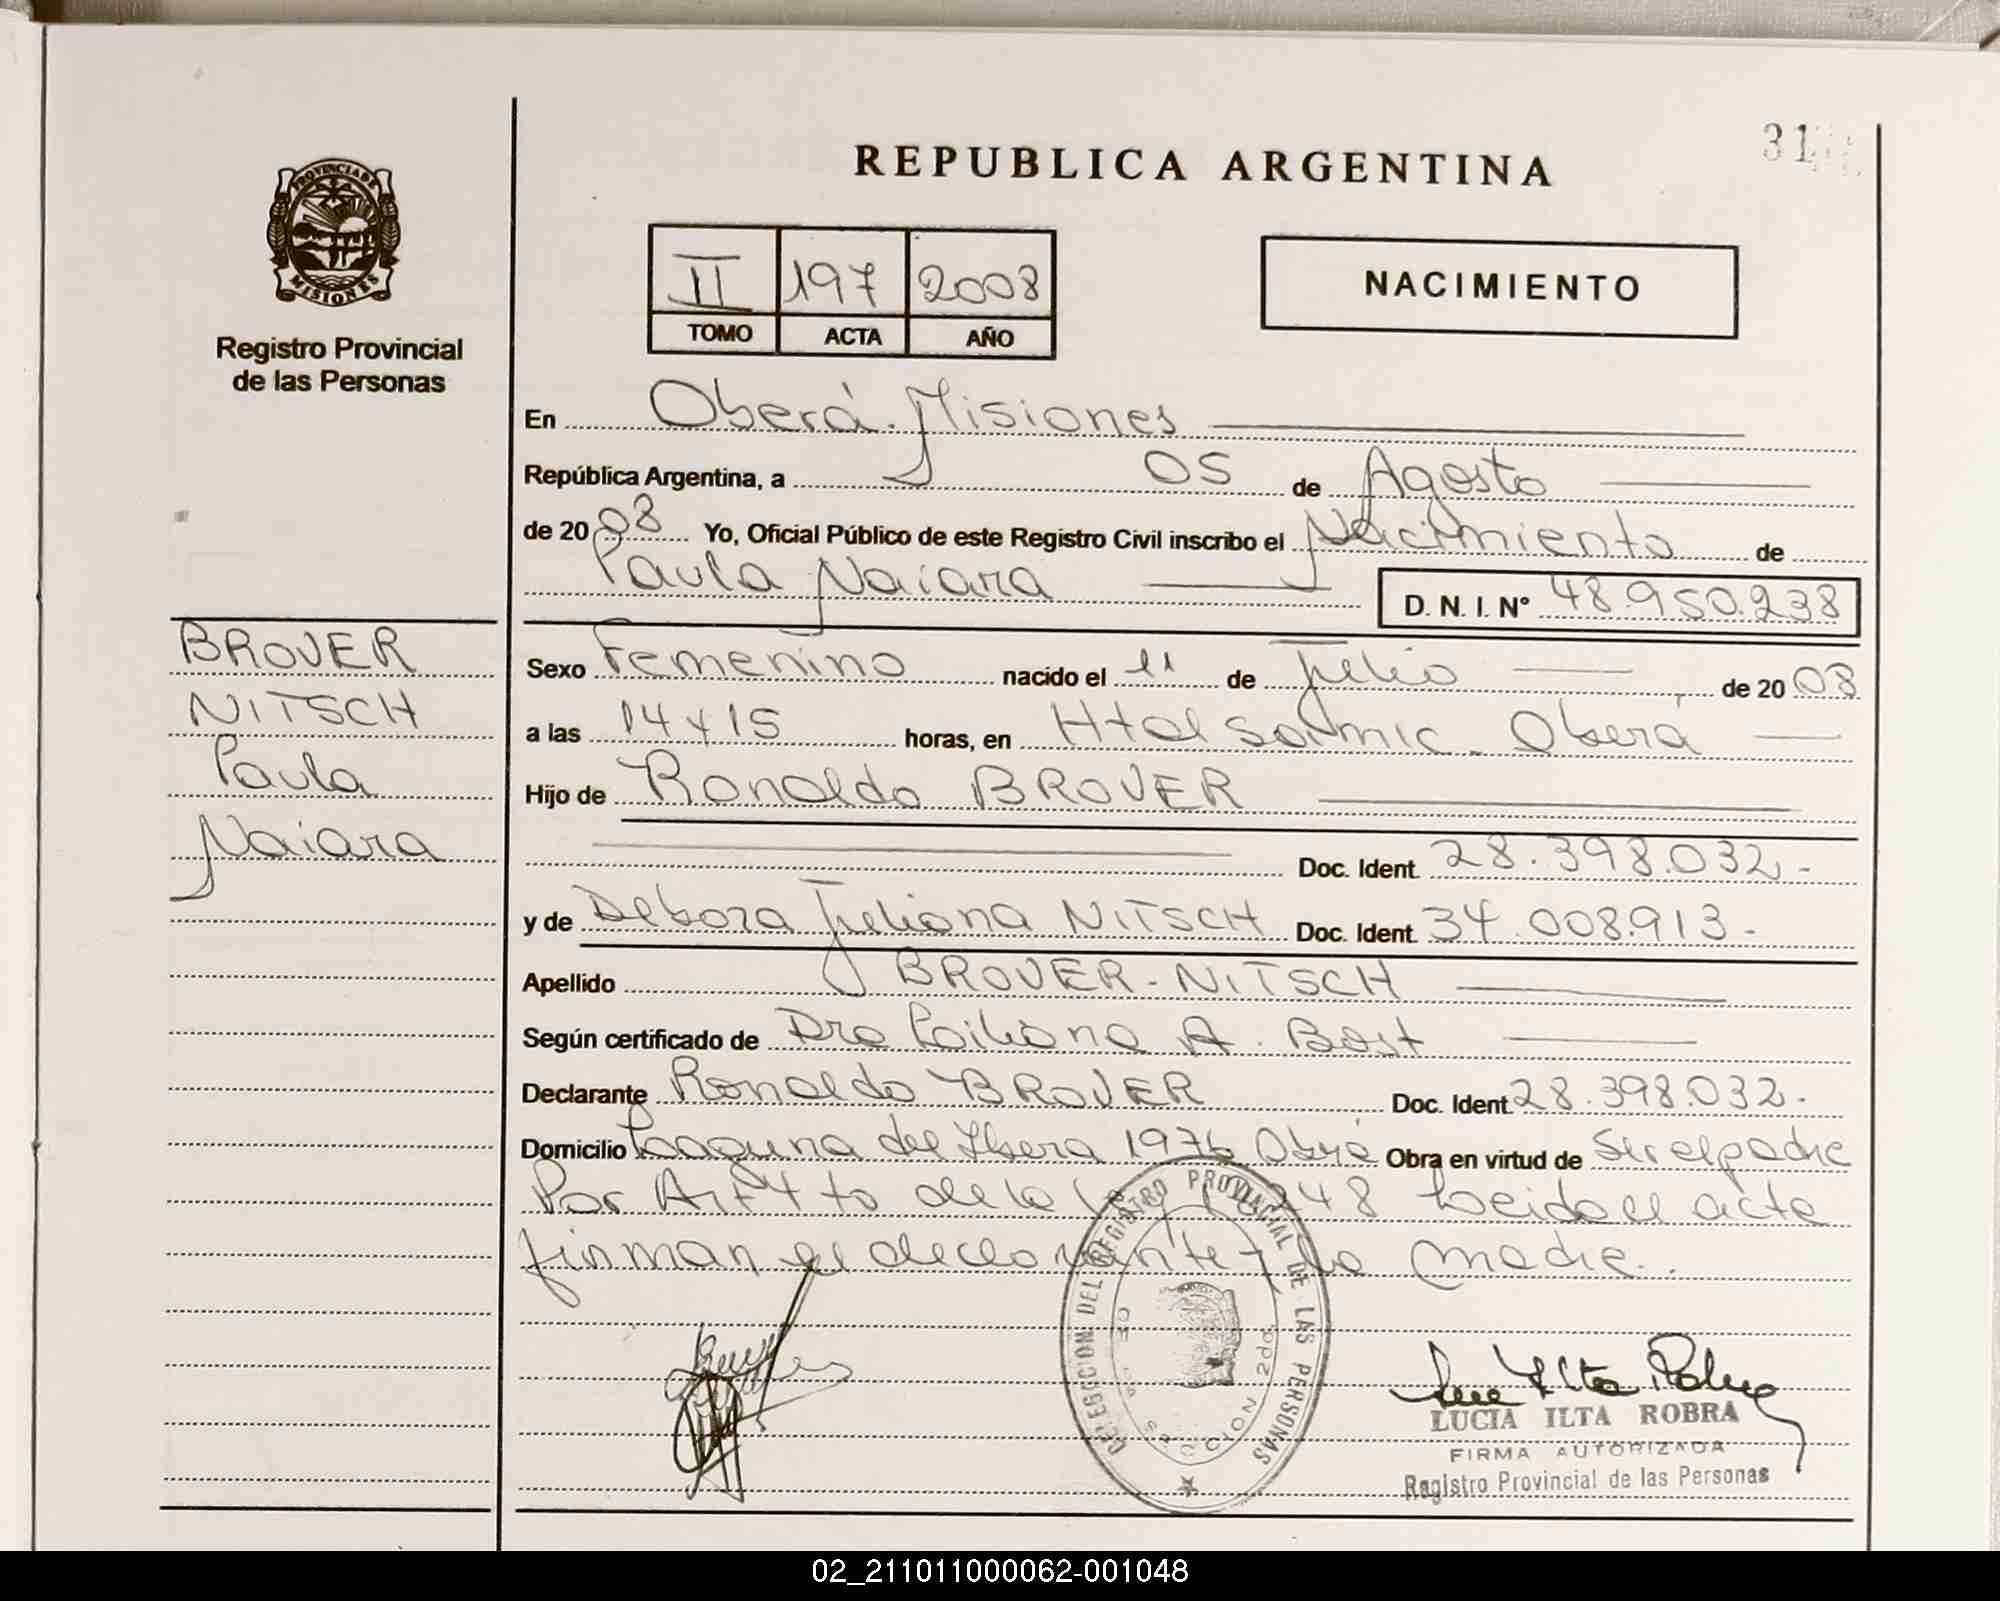 31
REPUBLICA ARGENTINA
PROVINCIA DE
MISIONES
Registro Provincial
de las Personas
II 197 2008
TOMO ACTA AÑO
NACIMIENTO
En Oberá. Misiones
República Argentina, a 05 de Agosto
de 2008 Yo, Oficial Público de este Registro Civil inscribo el Nacimiento de
Paula Naiara D. N. I. Nº 48.950.238
BROVER
NITSCH
Paula
Naiara
Sexo Femenino nacido el 11 de Julio de 2008
a las 14 y 15 horas, en Htal Samic. Oberá
Hijo de Ronaldo BROVER
Doc. Ident. 28.398.032.-
y de Debora Juliana NITSCH Doc. Ident. 34.008.913.-
Apellido BROVER-NITSCH
Según certificado de Dra Liliana A. Bast
Declarante Ronaldo BROVER Doc. Ident. 28.398.032.-
Domicilio Laguna del Ibera 1976 Oberá Obra en virtud de Ser el padre
Por Art 4 to de la 248 Leida el acta
firman el declarante y la madre..
DELEGACION DEL REGISTRO PROVINCIAL DE LAS PERSONAS
SECCION 2da
LUCIA ILTA ROBRA
FIRMA AUTORIZADA
Registro Provincial de las Personas
02_211011000062-001048